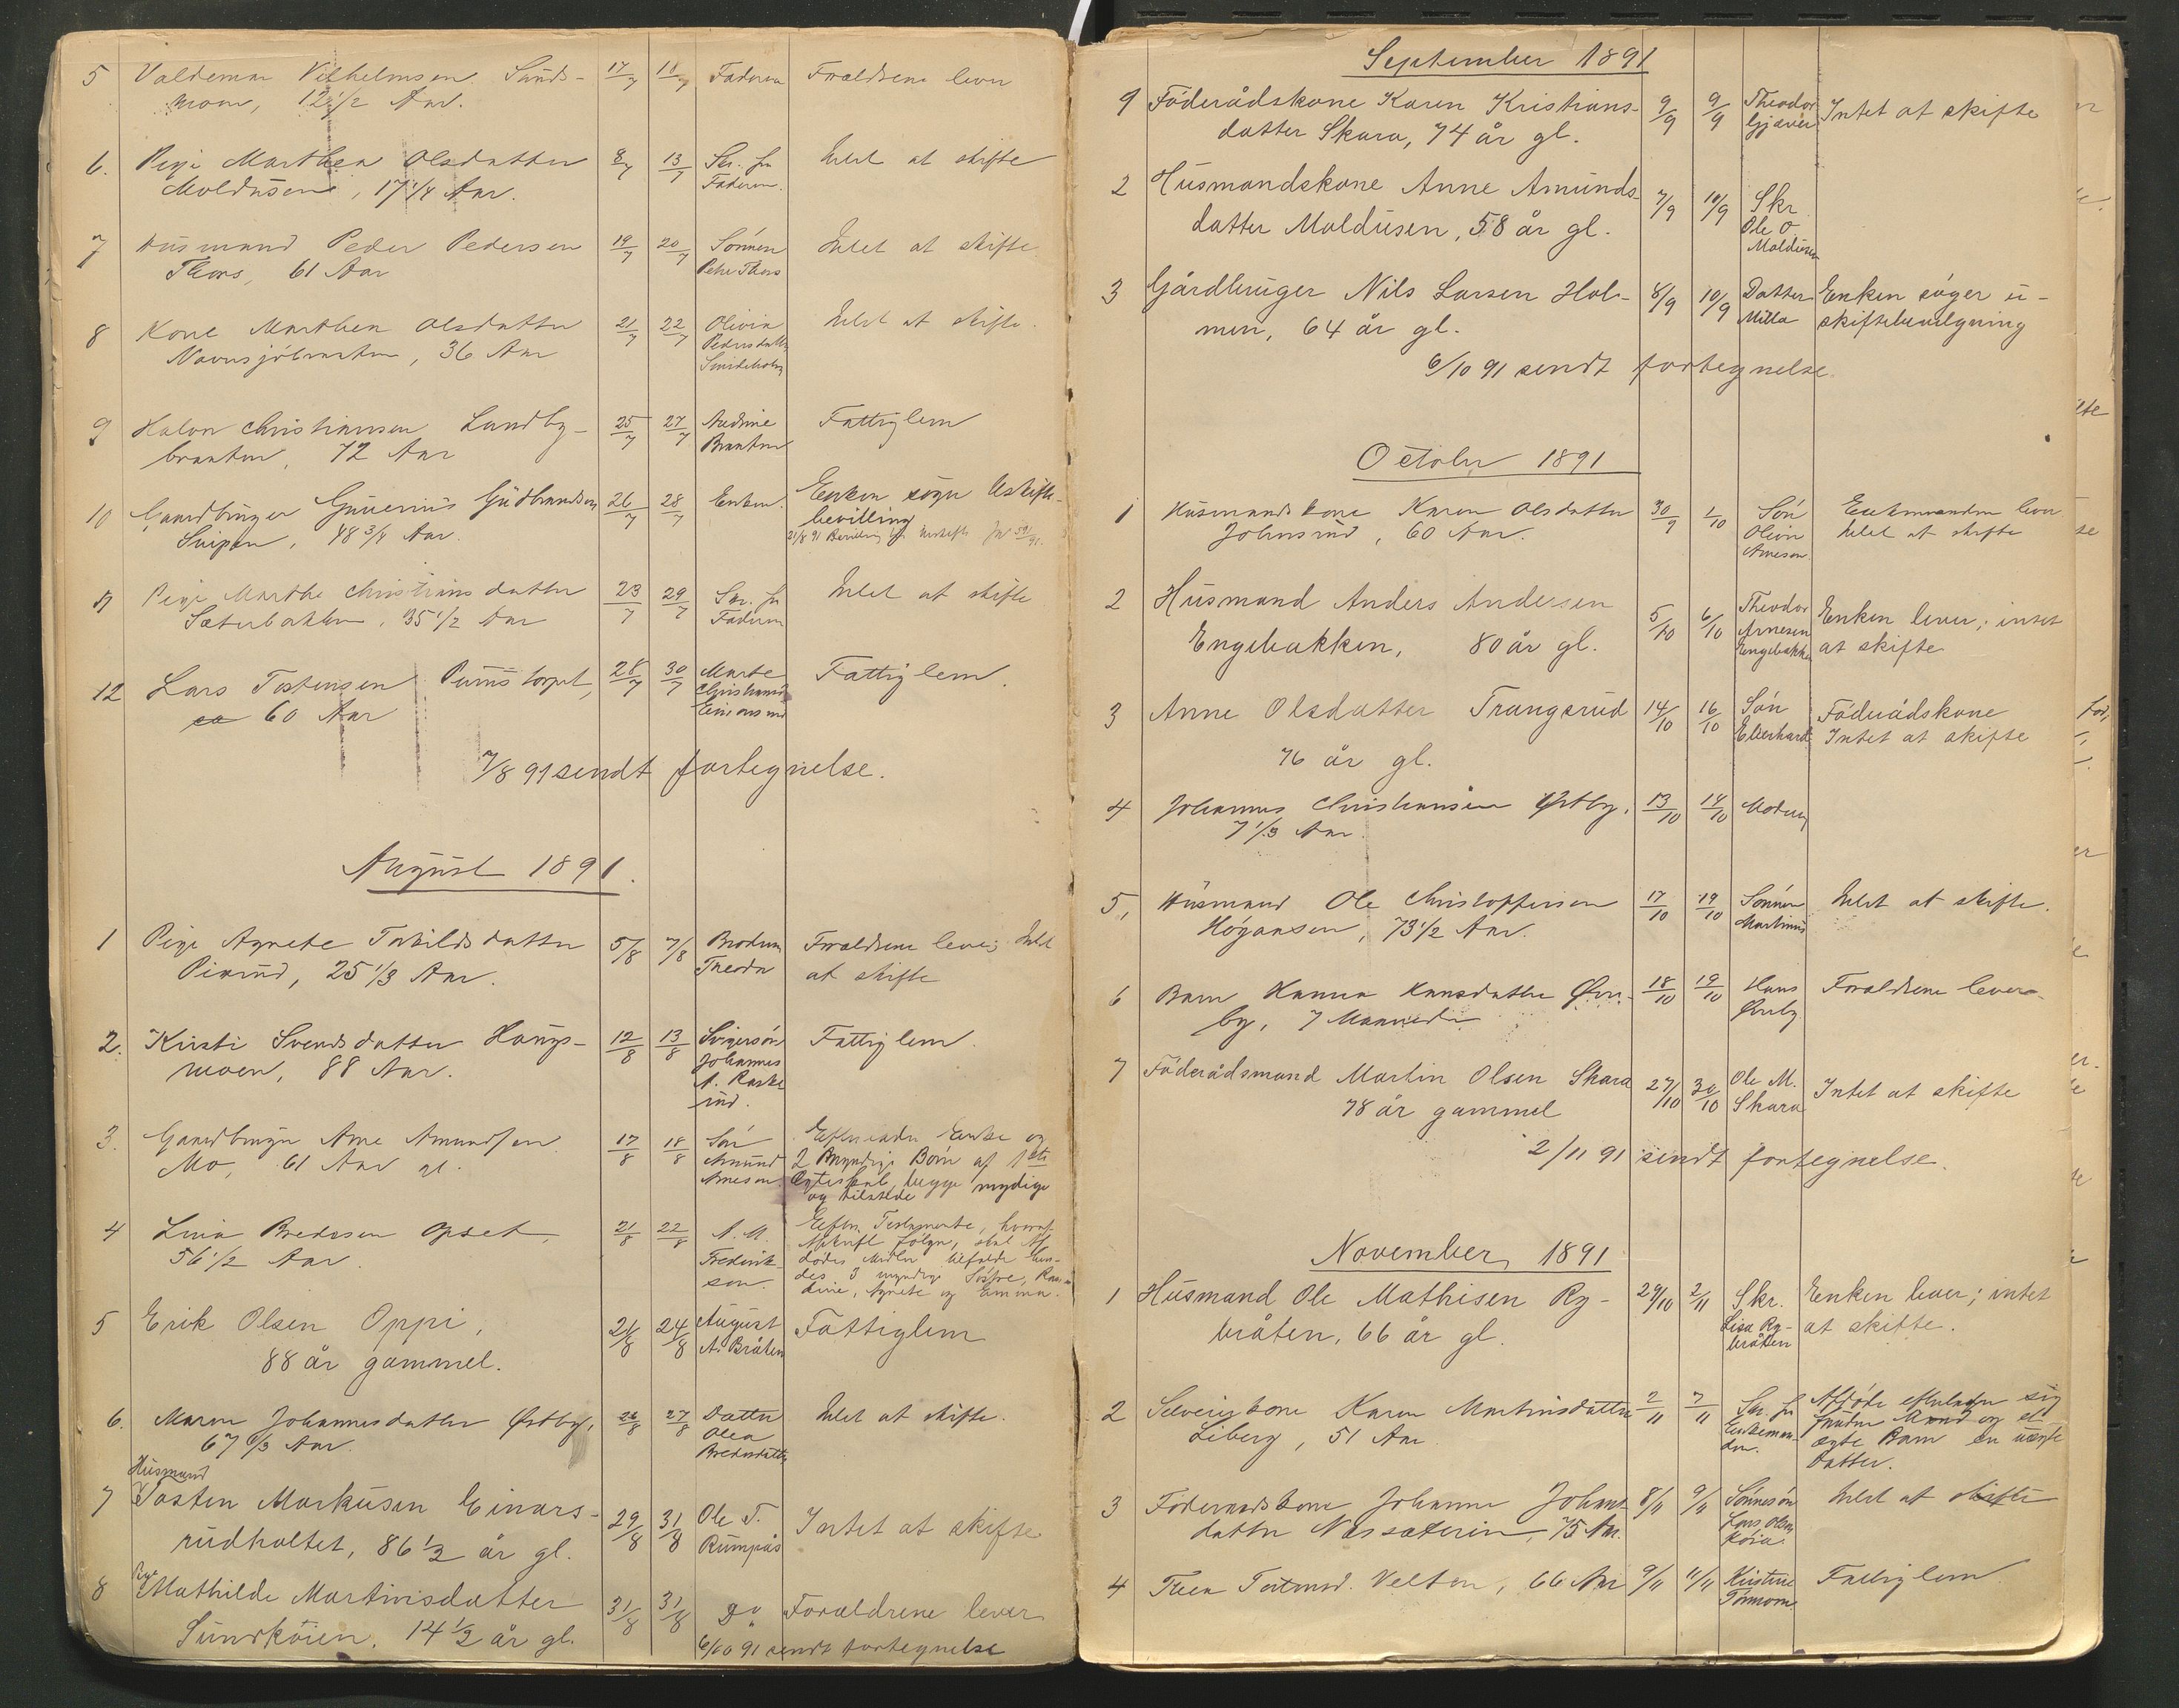 5 Valdemar Vilhelmsen Sunds- 17/7 18/7 Faderen Forældrene lever
moen, 12 1/2 Aar.
6. Pige Marthea Olsdatter 8/7 13/7 Skr. fra Intet at skifte
Moldusen, 17 1/4 Aar. Faderen.
7 Husmand Peder Pedersen 19/7 20/7 Sønnen Intet at skifte
Thors, 61 Aar Peter Thors
8 Kone Marthea Olsdatter 21/7 22/7 Olivia Intet at skifte.
36 Aar Pedersdatter
9 Halvor Christiansen Lundby- 25/7 27/7 Fattiglem
braaten, 72 Aar Braaten
10 Gaardbruger Gunerius Gudbrandsen 26/7 28/7 Enken. Enken søger Uskifte-
Snipen, 48 3/4 Aar. bevilling
21/8 91
11 Pige Marthe Christiansdatter 23/7 29/7 Skr. fra Intet at skifte
Sæterbakken, 35 1/2 Aar Faderen
12 Lars Tostensen 28/7 30/7 Marte Fattiglem.
ca 60 Aar Christiansd
7/8 91 sendt fortegnelse.
August 1891.
1 Pige Agnete Tobildsdatter 5/8 7/8 Broderen Forældrene lever; Intet
25 1/3 Aar. Theodor at skifte
2. Kristi Svendsdatter Haugs- 12/8 13/8 Svigersøn Fattiglem.
moen, 88 Aar. Johannes
3. Gaardbruger Arne Amundsen 17/8 18/8 Søn Efterlader Enke og
Mo, 61 Aar gl. Amund 2 Børn af 1ste
Arnesen Ægteskab, begge myndige
og tilstede
4 Lina Bredesen Opset, 21/8 22/8 A. M. Efter Testamente, hvoraf
56 1/2 Aar. Frederik- Afskrift følger, skal Af-
sen. dødes Midler tilfalde hen-
des 3 myndige Søstre,
Agnete og Emma.
5 Erik Olsen Oppi, 21/8 24/8 August Fattiglem
88 år gammel. A. Bråten
6. Maren Johannesdatter Østby, 26/8 27/8 Datter Intet at skifte.
67 1/3 Aar. Olea
Bredesdatter
Husmand
7 Tosten Markusen Einars- 29/8 31/8 Ole T. Intet at skifte
rudholtet, 86 1/2 år gl. Rumpås
Pige
8 Mathilde Martinsdatter 31/8 31/8 Do Forældrene lever
Sundköien, 14 1/2 år gl.
6/10 91 sendt fortegnelse
September 1891
1 Föderådskone Karen Kristians- 9/9 9/9 Theodor Intet at skifte
datter Skara, 74 år gl. Gjæver
2 Husmandskone Anne Amunds- 7/9 10/9 Skr
datter Moldusen, 58 år gl. Ole O.
Moldusen
3 Gårdbruger Nils Larsen Hol- 8/9 10/9 Datter Enken søger u-
men, 64 år gl. Milla skiftebevilgning
6/10 91 sendt fortegnelse
October 1891
1 Husmandskone Karen Olsdatter 30/9 1/10 Søn Enkemanden lever
Johnsrud, 60 Aar. Oliver Intet at skifte
Arnesen
2 Husmand Anders Andersen 5/10 6/10 Theodor Enken lever; intet
Engebakken, 80 år gl. Arnesen at skifte
Engebakken
3 Anne Olsdatter Trangsrud 14/10 16/10 Søn Föderådskone
76 år gl. Edverhard Intet at skifte
4 Johannes Christiansen Østby, 13/10 14/10 Moderen
7 1/3 Aar.
5, Husmand Ole Christoffersen 17/10 19/10 Sønnen Intet at skifte.
Högåsen, 73 1/2 Aar. Martinius
6 Barn Hanna Hansdatter Øver- 18/10 19/10 Hans Forældrene lever
by, 7 Maaneder Øverby
7 Föderådsmand Martin Olsen Skara 27/10 30/10 Ole M. Intet at skifte
78 år gammel Skara
2/11 91 sendt fortegnelse.
November 1891
1 Husmand Ole Mathisen Ry- 29/10 2/11 Skr. Enken lever; intet
bråten, 66 år gl. Lisa Ry- at skifte.
bråten
2 Selveierkone Karen Martinsdatter 2/11 7/11 Skr. fra Afdøde efterlader sig
Liberg, 51 Aar Enkeman- Mand og et
den. ægte Barn en uægte
Datter.
3 Föderaadskone Johanne Johans- 8/11 9/11 Sønnesøn Intet at skifte
datter 75 Aar. Lars Olsen
4 Thea 66 Aar 9/11 11/11 Kristine Fattiglem